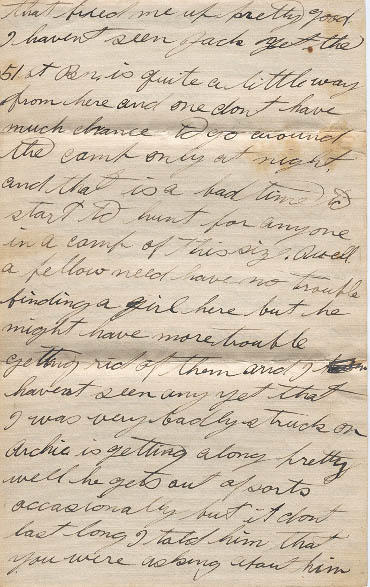 that tired me up pretty good
I havent seen Jack yet the
51st Bn is quite a little way
from here and one dont have
much chance to go around
the camp only at night
and that is a bad time to
start to hunt for anyone
in a camp of this size. Awell
a fellow need have no trouble
finding a girl here but he
might have more trouble
getting rid of them and I
havent seen any yet that
I was very badly struck on
Archie is getting along pretty
well he gets out of sorts
occasionally but it dont
last long I told him that
you were asking about him